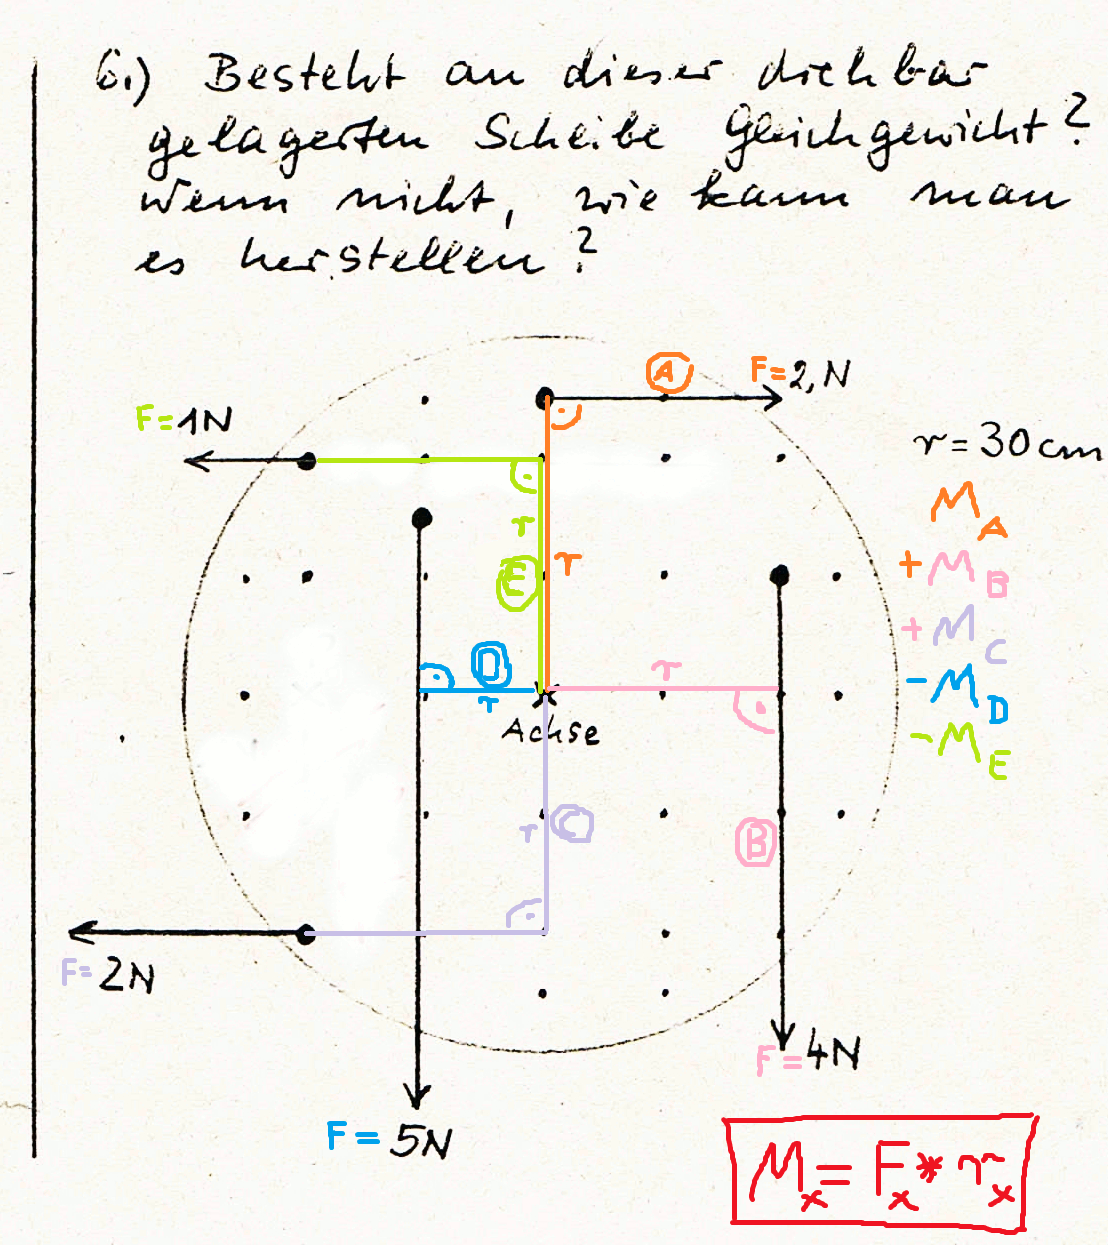 6.) Besteht an dieser drehbar
gelagerten Scheibe Gleichgewicht?
Wenn nicht, wie kann man
es herstellen?
A
F=2,N
F=1N
r=30cm
M_A
r
E
r
+M_B
+M_C
D
r
-M_D
r
Achse
-M_E
r
C
B
F=2N
F=4N
F=5N
M_x=F_x*r_x